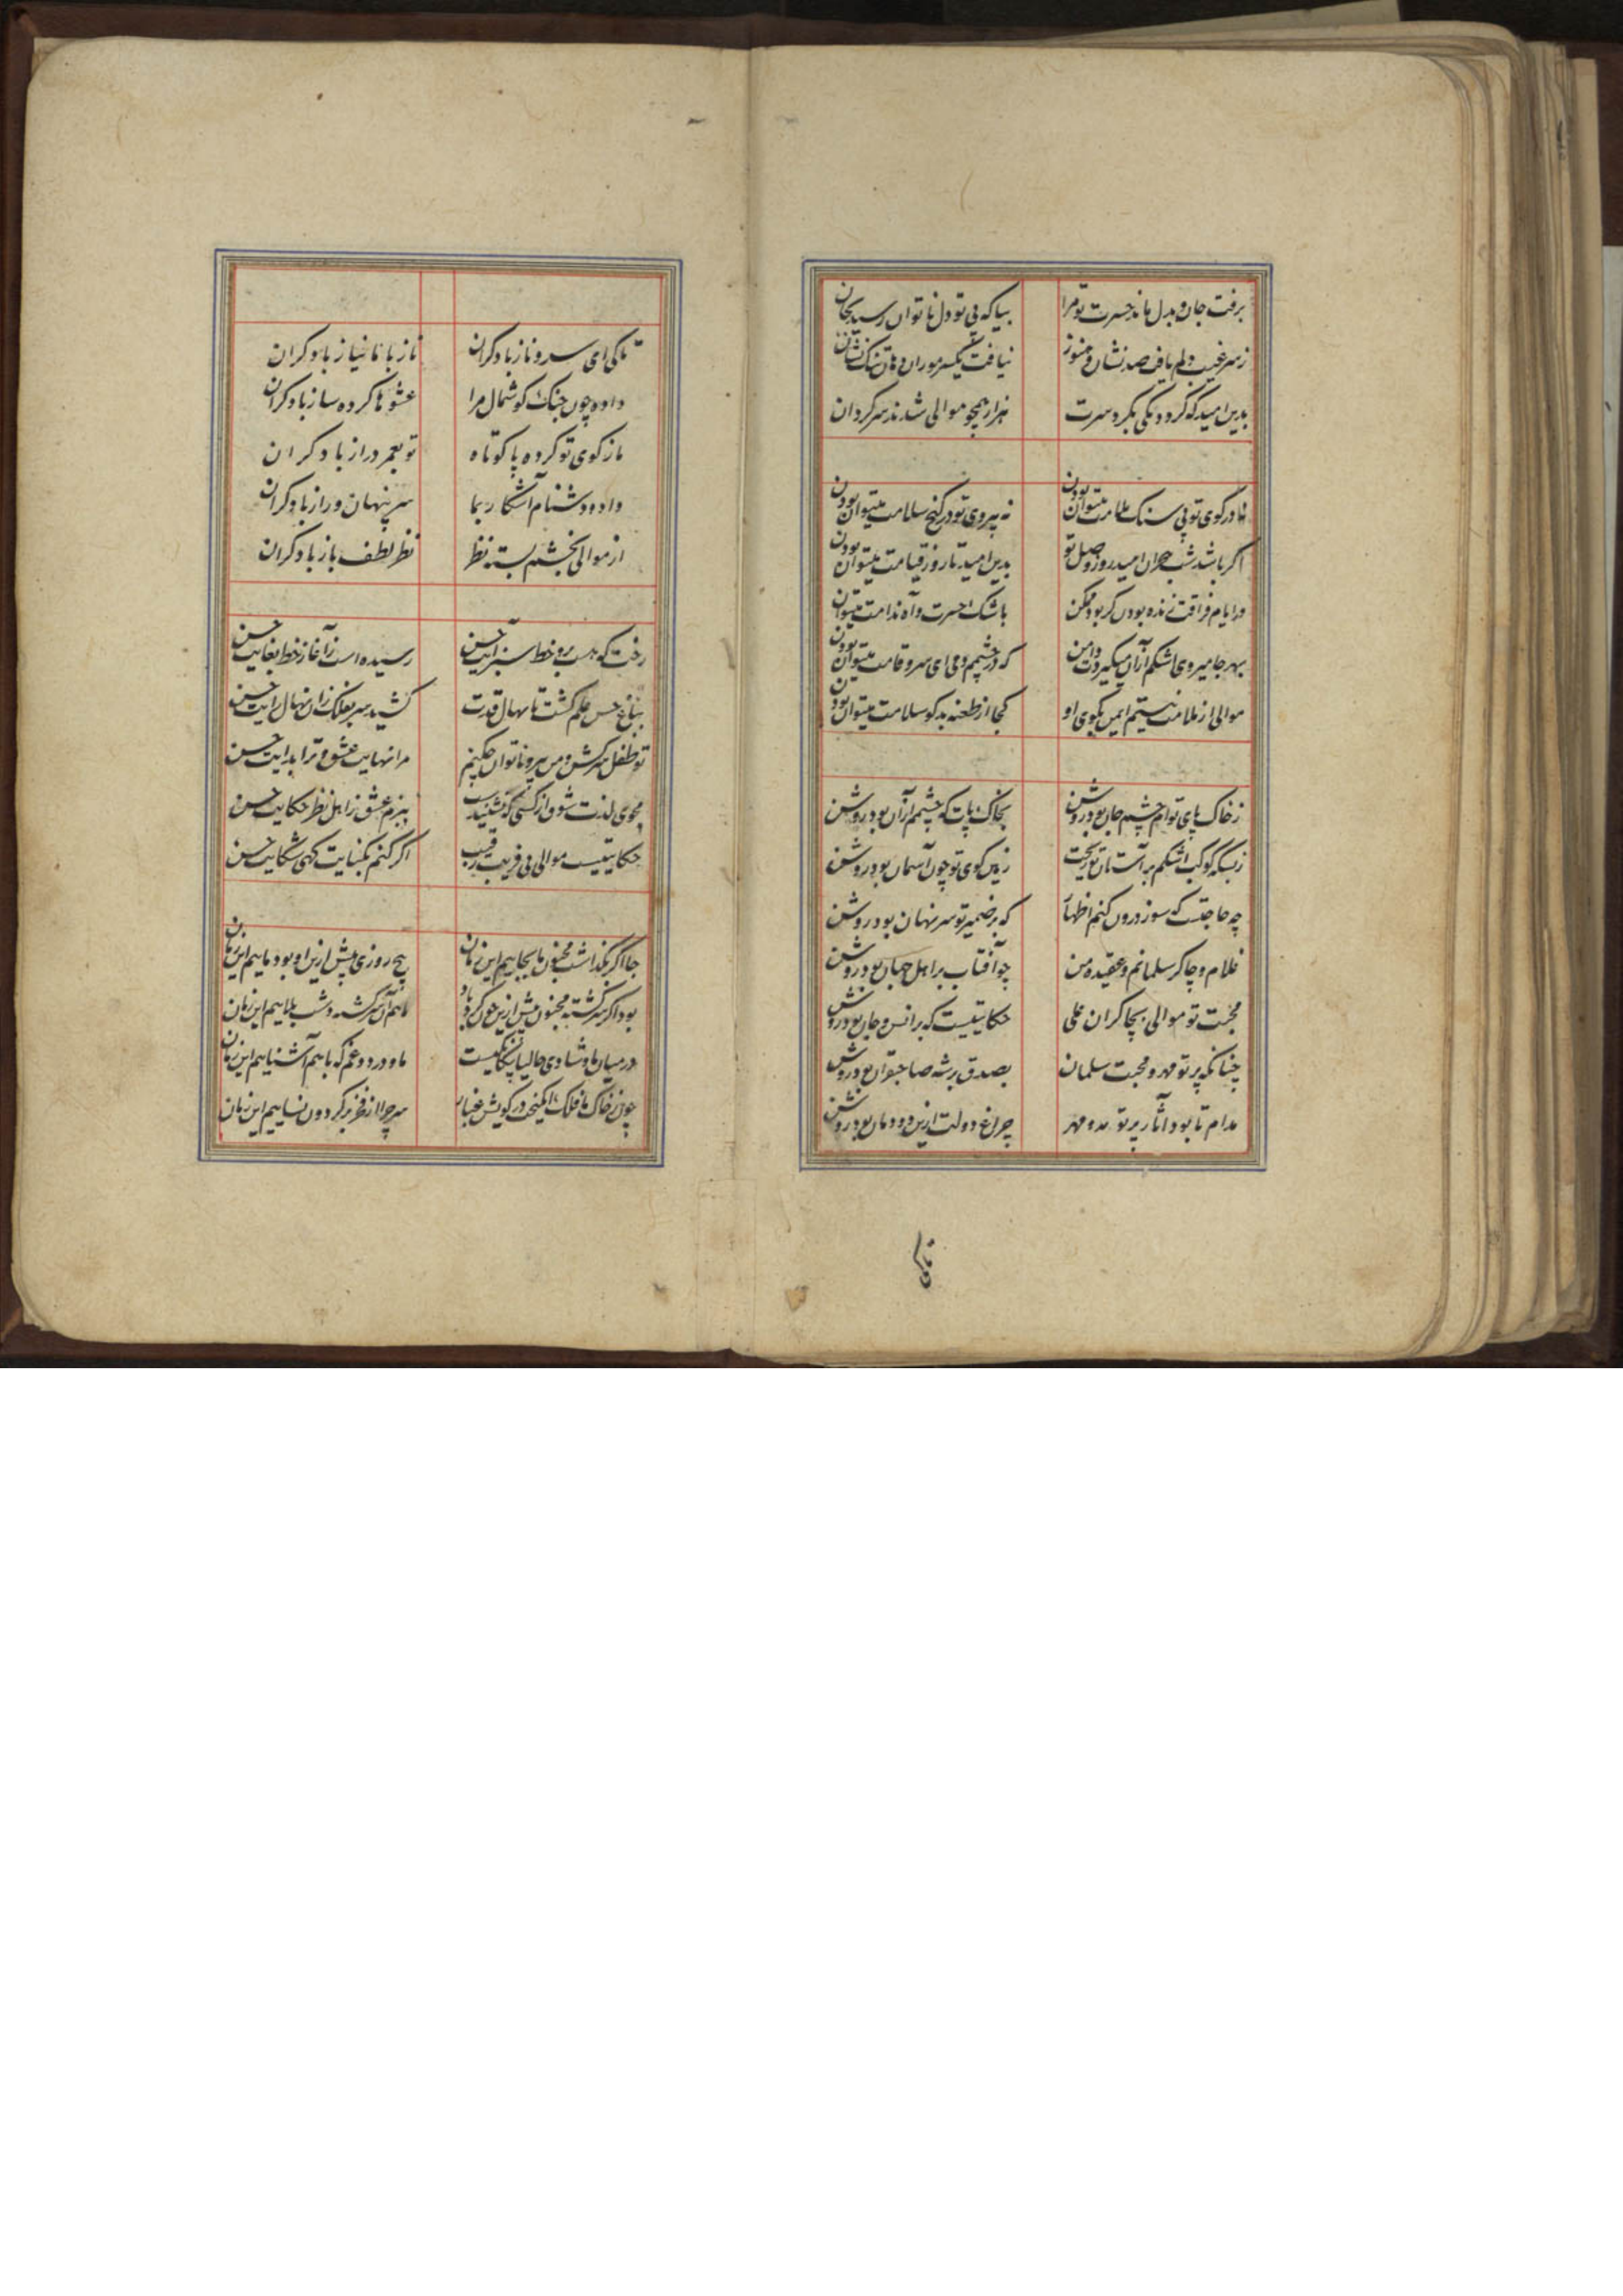 برفت جان و بدل ماند حسرت تو مرا بیا که بی تو دل ناتوان رسید بجان
ز سر غیب دلم یافت صد نشان و هنوز نیافت یکسر مو زان دهان تنک نشان
بدین امید که کردد یکی بکرد سرت هزار همچو موالی شدند سرکردان
نه در کوی تو بی سنک ملامت میتوان بودن نه بی روی تو در کنج سلامت میتوان بودن
اکر باشد شب هجران امید روز وصل تو بدین امید تا روز قیامت میتوان بودن
در ایام فراقت زنده بودن کر بود ممکن باشک حسرت و آه ندامت میتوان بودن
بهر جا میروی اشکم از آن میکیردت دامن که در چشمم دمی ای سرو قامت میتوان بودن
موالی از ملامت نیستم ایمن بکوی او کجا از طعنه بدکو سلامت میتوان بودن
ز خاک پای توام چشم جان بود روشن بخاک پات که چشمم از آن بود روشن
ز بسکه کوکب اشکم بر آستان تو ریخت زمین کوی تو چون آسمان بود روشن
چه حاجتست که سوز درون کنم اظهار که بر ضمیر تو سر نهان بود روشن
غلام و چاکر سلمانم و عقیده من چو آفتاب بر اهل جهان بود روشن
محبت تو موالی بچاکران علی حکایتیست که بر انس و جان بود روشن
چنانکه پرتو مهر و محبت سلمان بصدق بر شه صاحبقران بود روشن
مدام تا بود آثار پرتو مه و مهر چراغ دولت ازین دودمان بود روشن
تاکی
تاکی ای سرو ناز با دکران ناز با ما نیاز با دکران
داده چون چنک کوشمال مرا عشوها کرده ساز با دکران
ما ز کوی تو کرده پا کوتاه تو بعمر دراز با دکران
داده دشنام آشکار بما سر پنهان و راز با دکران
از موالی بخشم بسته نظر نظر لطف باز با دکران
رخت که هست برو خط سبز آیت حسن رسیده است ز آغاز خط بغایت حسن
بباغ حسن علم کشت تا نهال قدت کشید سر بفلک زان نهال رایت حسن
تو طفل سرکش و من پیر و ناتوان چکنم مرا نهایت عشق و ترا بدایت حسن
مجوی لذت شوق از کسی که نشنیدست ببزم عشق ز اهل نظر حکایت حسن
حکایتیست موالی پی فریب رقیب اکر کنم بکنایت کهی شکایت حسن
جا اکر بکذاشت مجنون ما بجاییم این زمان پنج روزی پیش ازین او بود ماییم این زمان
بود اکر سرکشته مجنون پیش ازین چون کردباد ما هم آن سرکشته دشت بلاییم این زمان
در میان ما و شادی حالیا بیکانکیست ما و درد و غم که با هم آشناییم این زمان
چون ز خاک ما فلک انکیخت در کویش غبار سر چرا از فخر بر کردون نساییم این زمان